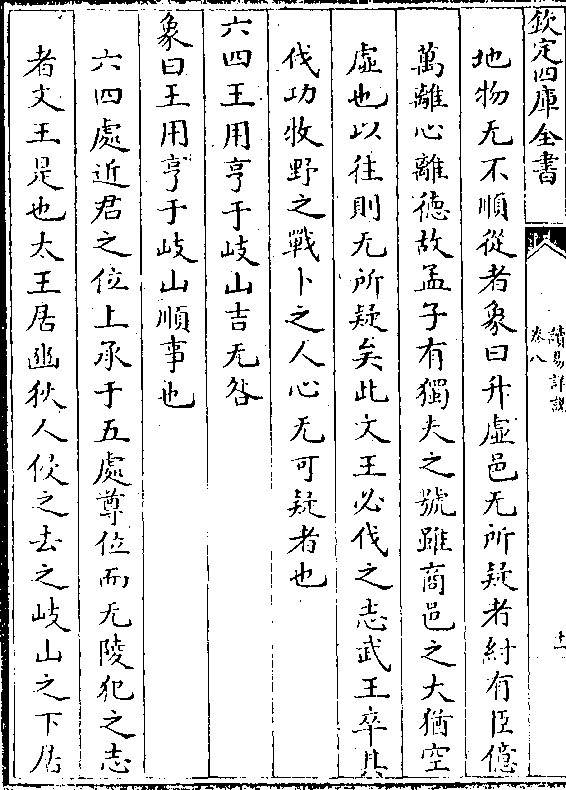 欽定四庫全書
讀易詳說
卷八
十一
地物无不順從者象曰升虛邑无所疑者紂有臣億
萬離心離德故孟子有獨夫之號雖商邑之大猶空
虛也以往則无所疑矣此文王必伐之志武王卒其
伐功牧野之戰卜之人心无可疑者也
六四王用亨于岐山吉无咎
象曰王用亨于岐山順事也
六四處近君之位上承于五處尊位而无陵犯之志
者文王是也太王居豳狄人侵之去之岐山之下居